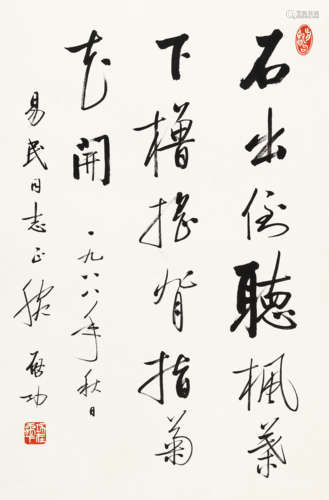 石出倒聽楓葉
下櫓搖背指菊
花開
一九八八年秋日
易民同志正腕 启功